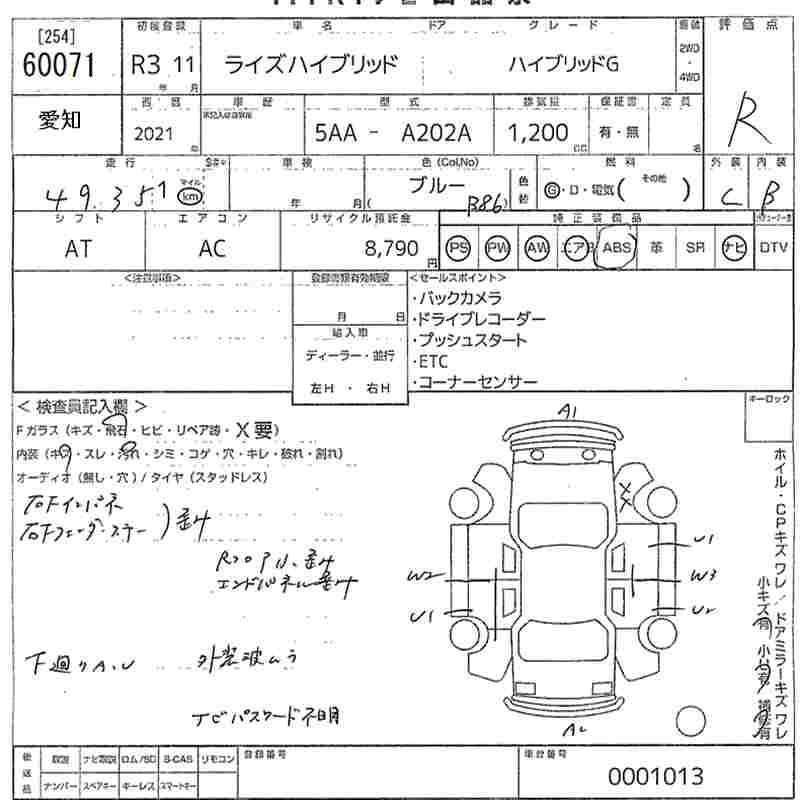 [254]
60071
初度登録
R3 11
年 月
車名 ドア グレード
ライズハイブリッド ハイブリッドG
2WD
・
4WD
評価点
R
愛知
西暦
2021
年
車歴
型式
5AA - A202A
排気量
1,200
CC
保証書
有・無
定員
名
走行
49,351
マイル
km
車検
年 月
色(Col,No)
ブルー
(B86)
色替
燃料
G・D・電気( その他 )
外装
C
内装
B
シフト
AT
エアコン
AC
リサイクル預託金
8,790
円
純正装備品
PS PW AW エアB ABS 革 SR ナビ DTV
<注意事項>
登録書類有効期限
月 日
輸入車
ディーラー・並行
左H ・ 右H
<セールスポイント>
・バックカメラ
・ドライブレコーダー
・プッシュスタート
・ETC
・コーナーセンサー
キーロック
< 検査員記入欄 >
Fガラス (キズ・飛石・ヒビ・リペア跡・X要)
内装 (キズ・スレ・汚れ・シミ・コゲ・穴・キレ・破れ・割れ)
オーディオ (無し・穴) / タイヤ (スタッドレス)
右Fインパネ
右Fフェンダーステー
) 歪み
Rフロアル、歪み
エンドパネル歪み
下廻りA、U
外装波ムラ
ナビパスワード不明
A1
X
X
U1
W2
W3
U1
U2
A2
ホイル・CPキズ ワレ / ドアミラーキズ ワレ
小キズ有 小凹有 補修有
後送品
取説 ナビ取説 ロム/SD B-CAS リモコン
ナンバー スペアキー キーレス スマートキー
登録番号
車台番号
0001013